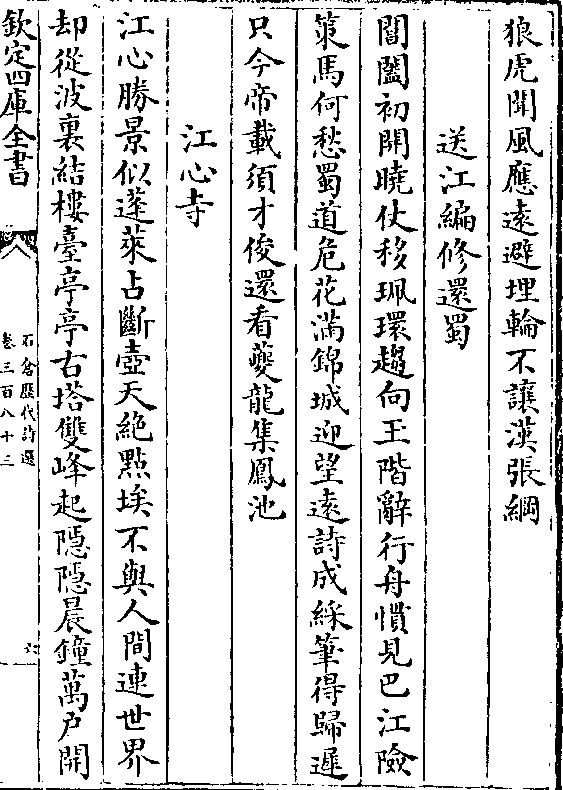 狼虎聞風應遠避埋輪不讓漢張綱
送江編修還蜀
閶闔初開曉仗移珮環趨向王階辭行舟慣見巴江險
策馬何愁蜀道危花滿錦城迎望遠詩成綵筆得歸遲
只今帝載須才俊還看夔龍集鳳池
江心寺
江心勝景似蓬萊占斷壺天絶點埃不與人間連世界
却從波裏結樓臺亭亭古塔雙峰起隠隠晨鐘萬户開
欽定四庫全書
石倉歷代詩選
卷三百八十三
六